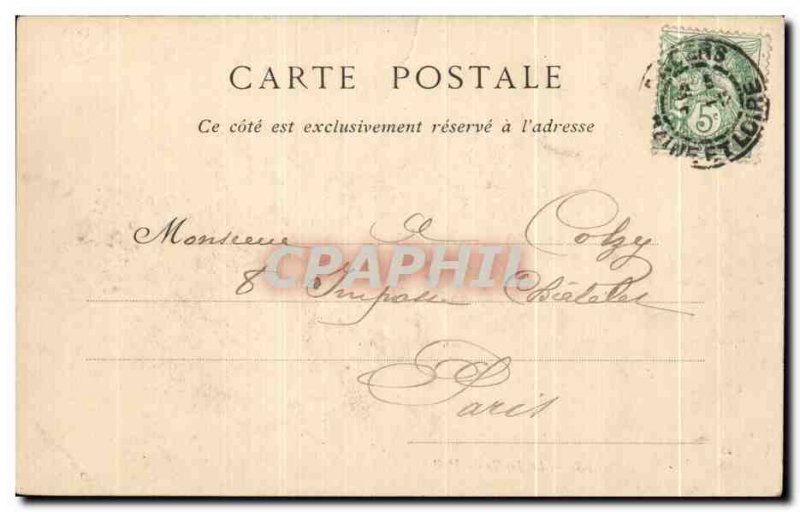 CARTE POSTALE
Ce côté est exclusivement réservé à l'adresse
ANGERS
MAINE ET LOIRE
5c
Monsieur
CPAPHIL
8 Impasse Châtelet
Paris